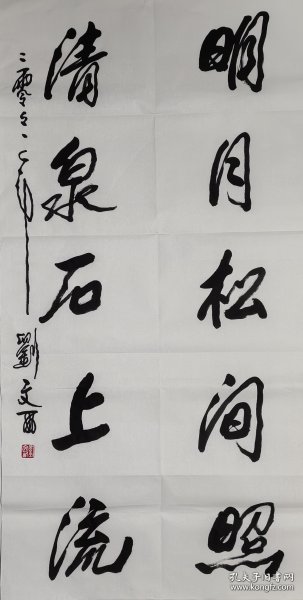 明月松间照
清泉石上流
二零零一年
劉文西
孔夫子旧书网